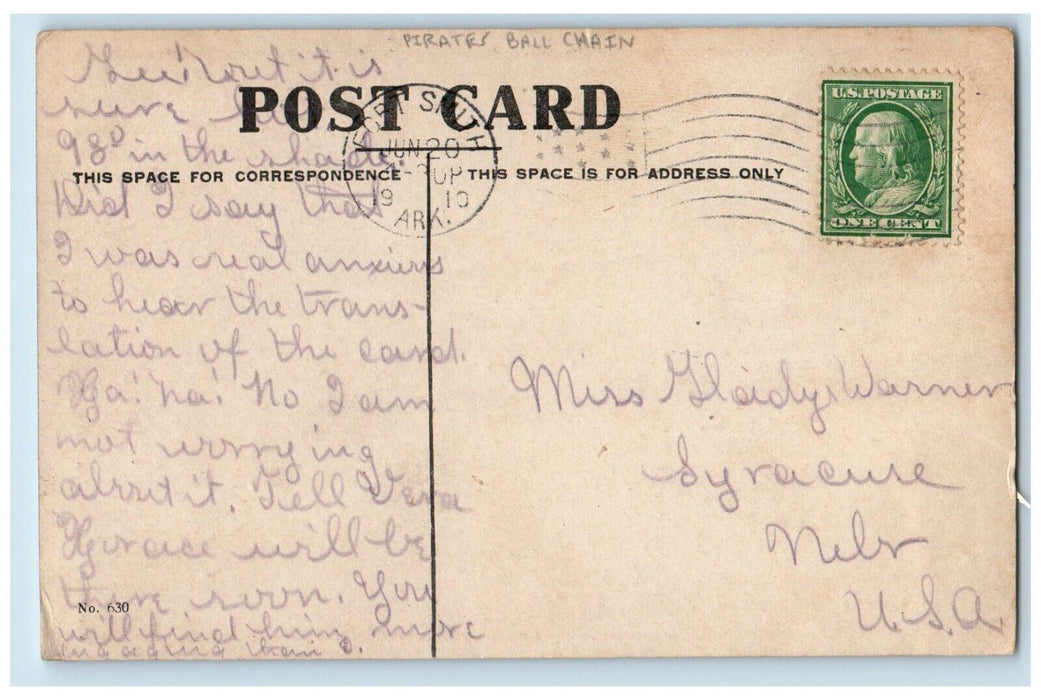 PIRATES BALL CHAIN
POST CARD
FORT SMITH
JUN 20
-30P
19 10
ARK.
U.S. POSTAGE
ONE CENT
THIS SPACE FOR CORRESPONDENCE
THIS SPACE IS FOR ADDRESS ONLY
Gee! but it is
sure
98° in the shade.
Did I say that
I was real anxious
to hear the trans-
lation of the card.
Ha! ha! No I am
not worrying
about it. Tell Vera
Horace will be
there soon. You
will find him more
engaging than
Miss Gladys Warner
Syracuse
Nebr
U.S.A.
No. 630